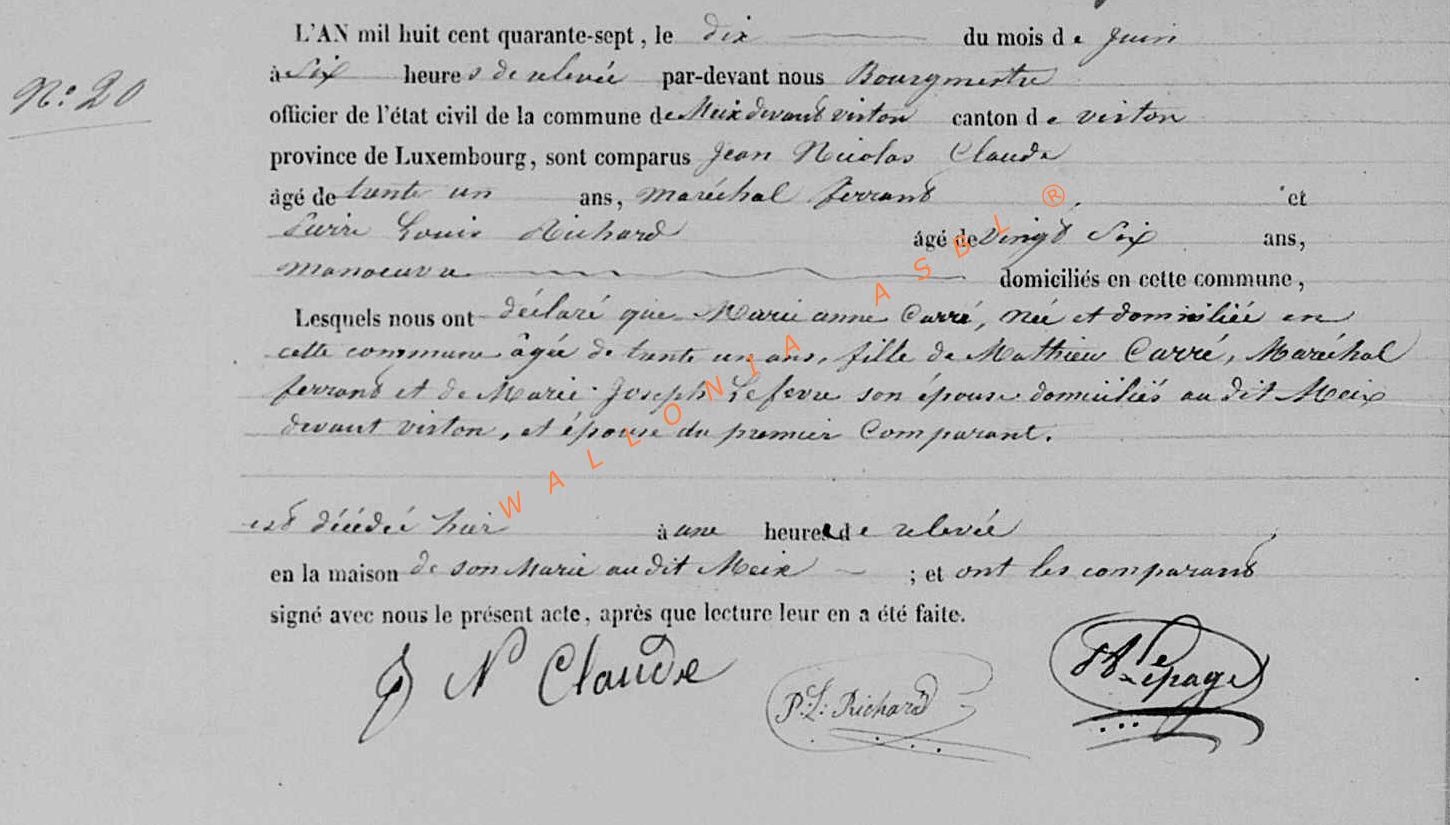 L'AN mil huit cent quarante-sept, le dix du mois de juin
N.o 20
à Six heures de relevée par-devant nous Bourgmestre
officier de l'état civil de la commune de Meix devant virton canton de virton
province de Luxembourg, sont comparus Jean Nicolas Claude
âgé de trente un ans, maréchal ferrant, et
Pierre Louis Richard âgé de vingt Six ans,
manoeuvre domiciliés en cette commune,
Lesquels nous ont déclaré que Marie anne Carré, née et domiciliée en
cette commune âgée de trente un ans, fille de Mathieu Carré, Maréchal
ferrant et de Marie Joseph Lefevre son épouse domiciliés au dit Meix
devant virton, et épouse du premier Comparant.
est décédée hier à une heure de relevée
en la maison de son Marie au dit Meix ; et ont les comparants
signé avec nous le présent acte, après que lecture leur en a été faite.
J N Claude
P. L. Richard
Lepage
WALLONIA ASBL ®